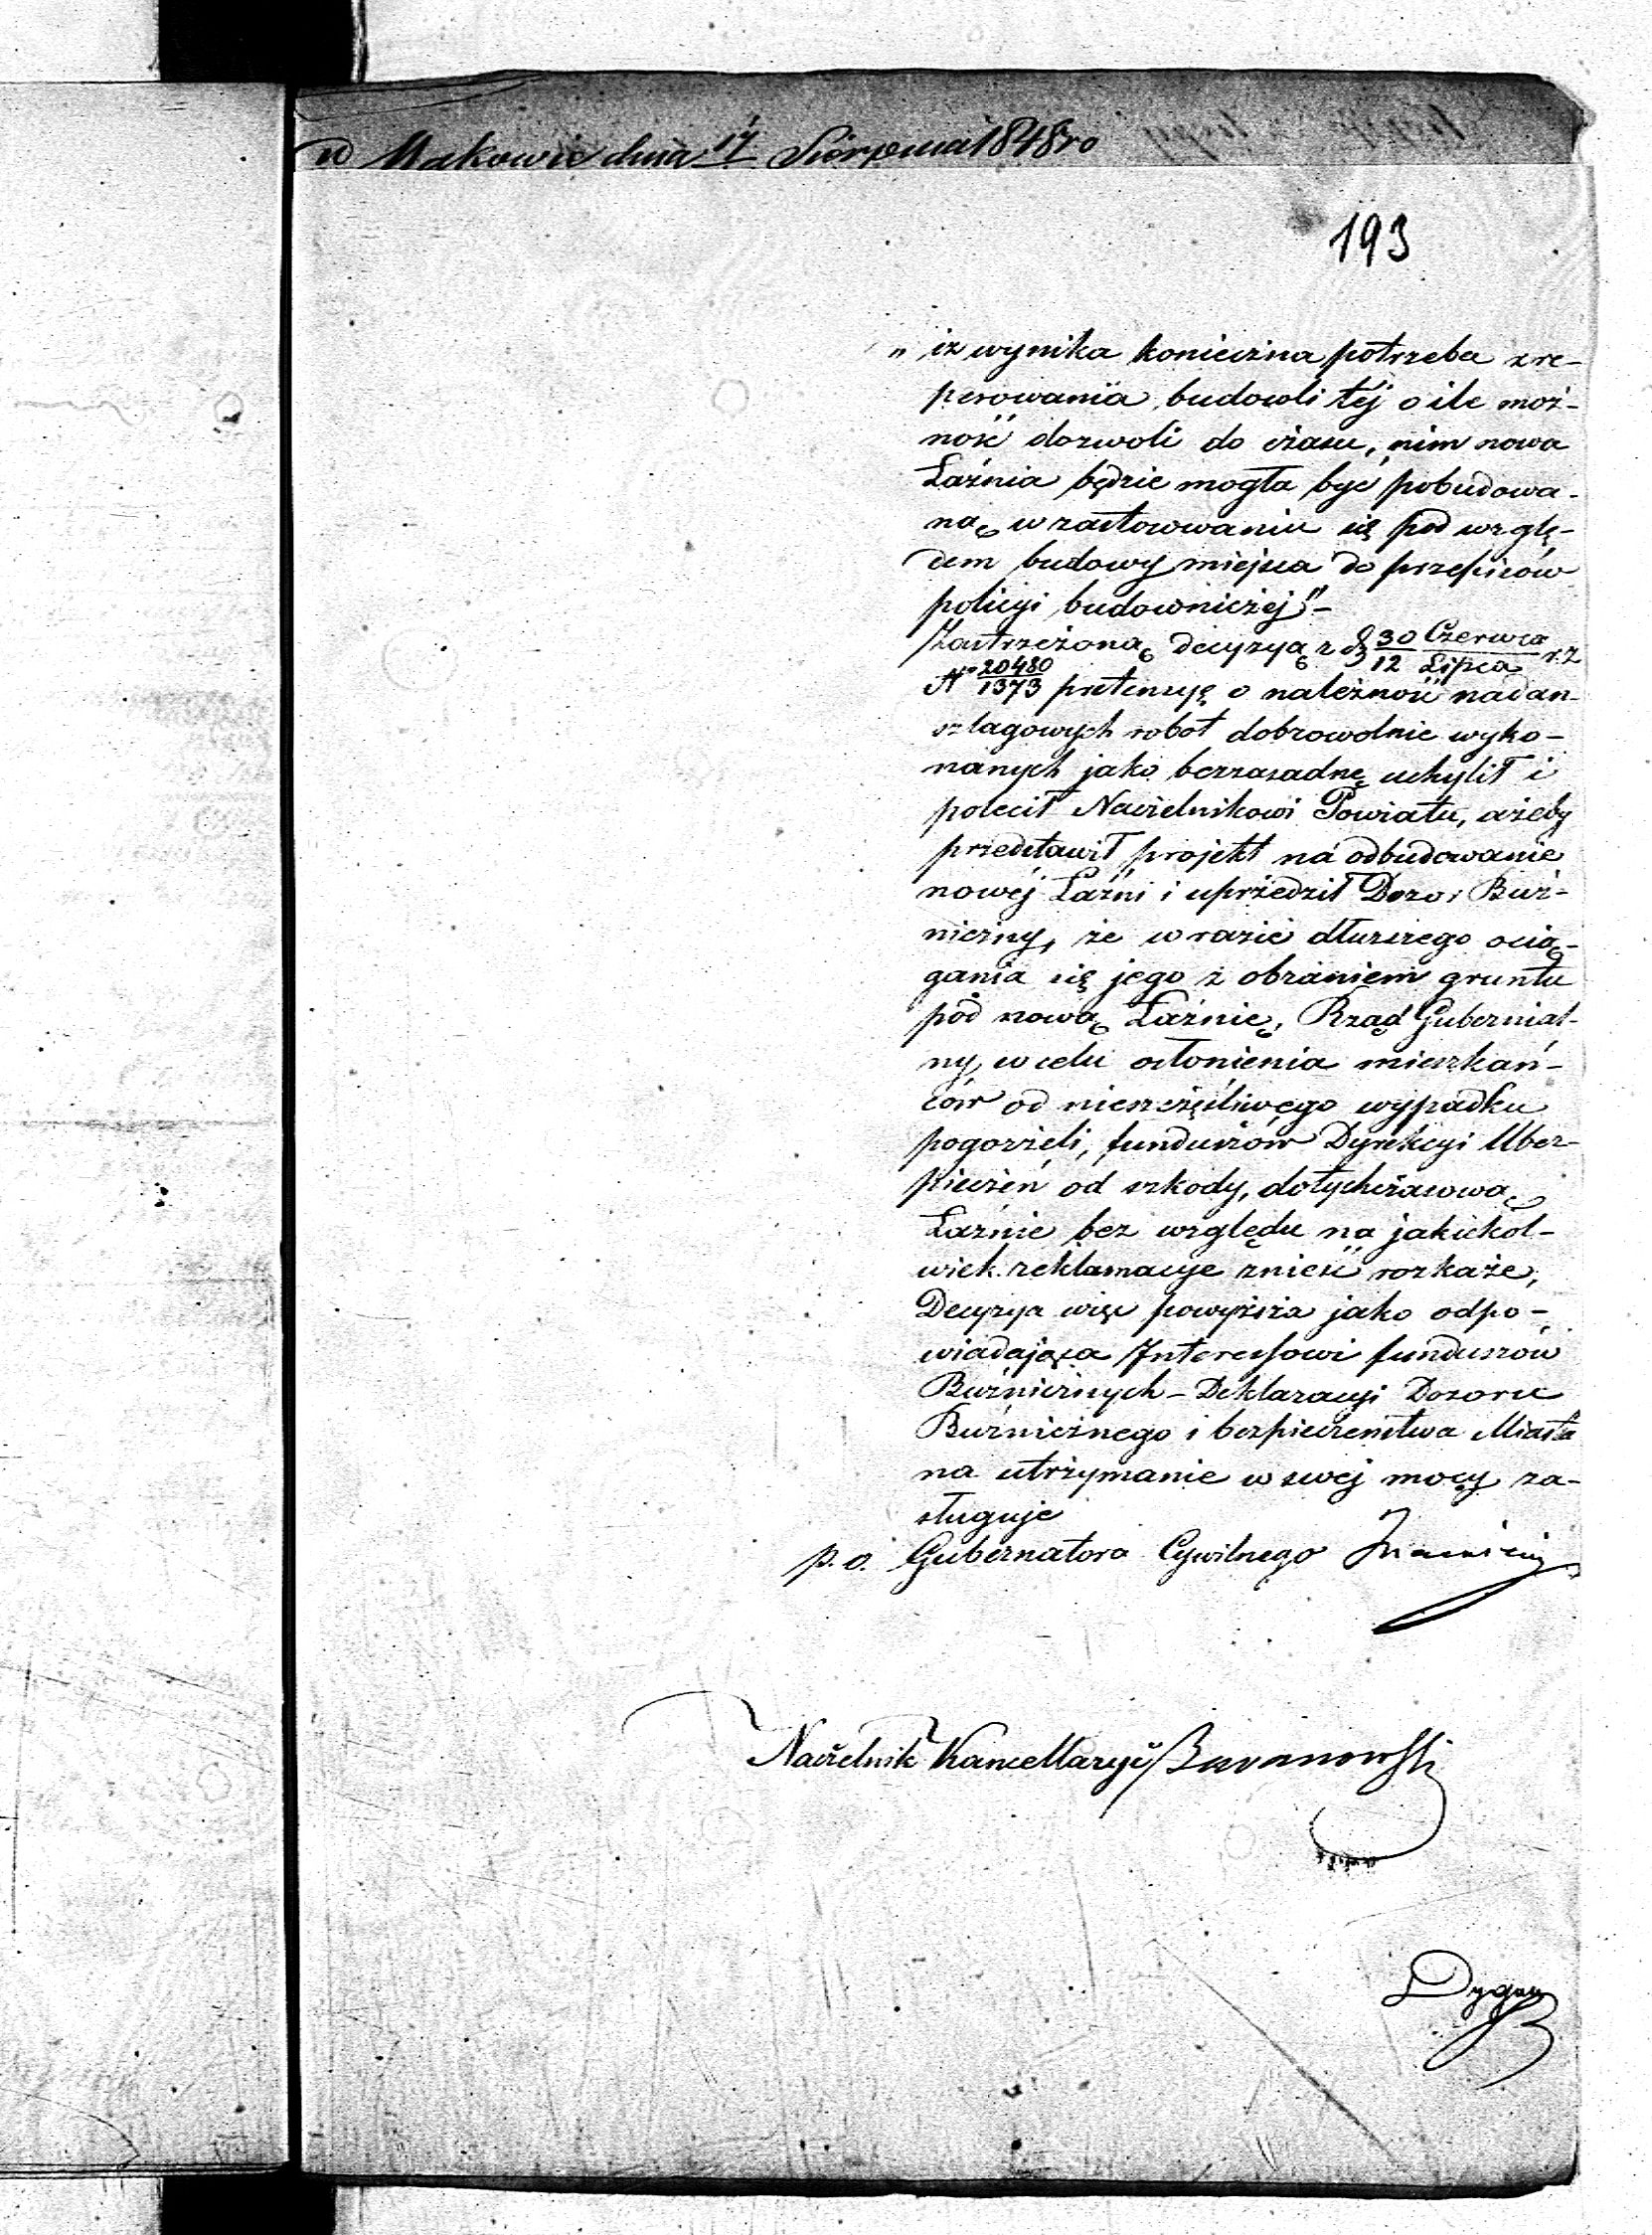 w Makowie dnia 17 Sierpnia 1848 ro
193
" iż wynika konieczna potrzeba zre-
perowania budowli téj o ile moż-
ność dozwoli do czasu, nim nowa
Łaźnia będzie mogła być pobudowa-
ną w zastosowaniu się pod wzglę-
dem budowy miejsca do przepisów
policyi budowniczéj"-
Zastrzeżoną decyzyą z d 30 Czerwca / 12 Lipca r. z
N° 20480/1373 pretensyę o należność nadan-
szlagowych robót dobrowolnie wyko-
nanych jako bezzasadnę uchylił i
polecił Naczelnikowi Powiatu, ażeby
przedstawił projekt na odbudowanie
nowéj Łaźni i uprzedził Dozor Buź-
niczny, że w razie dłuższego ocią-
gania się jego z obraniem gruntu
pod nową Łaźnię, Rząd Gubernial-
ny, w celu osłonienia mieszkań-
ców od nieszczęśliwego wypadku
pogorzeli, funduszów Dyrekcyi Ubez-
pieczeń od szkody, dotychczasową
Łaźnie bez względu na jakiekol-
wiek reklamacye znieść rozkaże,
Decyzya więc powyższa jako odpo-
wiadająca Interessowi funduszów
Buźnicznych - Deklaracyi Dozoru
Buźnicznego i bezpieczeństwa Miasta
na utrzymanie w swéj mocy za-
sługuje
p. o. Gubernatora Cywilnego
Naczelnik Kancellaryi Baranowski